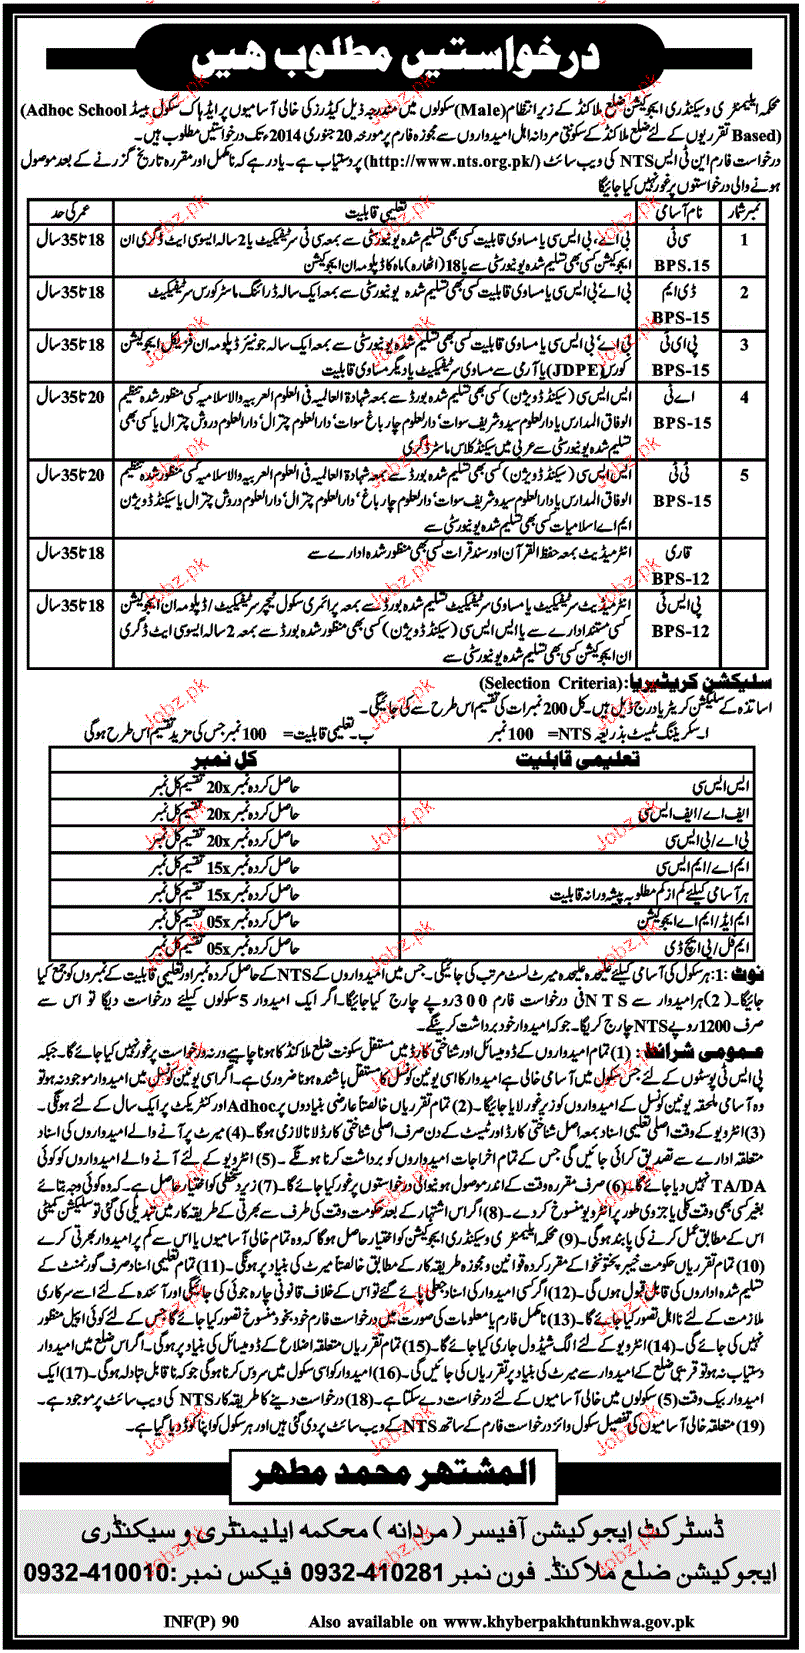 درخواستیں مطلوب ہیں
محکمہ ایلیمنٹری و سیکنڈری ایجوکیشن ضلع ملاکنڈ کے زیر انتظام (Male) سکولوں میں مندرجہ ذیل کیڈرز کی خالی آسامیوں پر ایڈہاک سکول بیسڈ (Adhoc School
Based) تقرریوں کے لئے ضلع ملاکنڈ کے سکونتی مردانہ اہل امیدواروں سے مجوزہ فارم پر مورخہ 20 جنوری 2014ء تک درخواستیں مطلوب ہیں۔
درخواست فارم این ٹی ایس NTS کی ویب سائٹ (http://www.nts.org.pk/) پر دستیاب ہے۔ یاد رہے کہ نامکمل اور مقررہ تاریخ گزرنے کے بعد موصول
ہونے والی درخواستوں پر غور نہیں کیا جائیگا
نمبر شمار نام آسامی تعلیمی قابلیت عمر کی حد
1 سی ٹی BPS.15 بی اے، بی ایس سی یا مساوی قابلیت کسی بھی تسلیم شدہ یونیورسٹی سے بمعہ سی ٹی سرٹیفکیٹ یا 2 سالہ ایسوسی ایٹ ڈگری ان 18 تا 35 سال
ایجوکیشن کسی بھی تسلیم شدہ یونیورسٹی سے یا 18 (اٹھارہ) ماہ کا ڈپلومہ ان ایجوکیشن
2 ڈی ایم BPS-15 بی اے/بی ایس سی یا مساوی قابلیت کسی بھی تسلیم شدہ یونیورسٹی سے بمعہ ایک سالہ ڈرائنگ ماسٹر کورس سرٹیفکیٹ 18 تا 35 سال
3 پی ای ٹی BPS-15 بی اے/بی ایس سی یا مساوی قابلیت کسی بھی تسلیم شدہ یونیورسٹی سے بمعہ ایک سالہ جونیئر ڈپلومہ ان فزیکل ایجوکیشن 18 تا 35 سال
کورس (JDPE) یا آرمی سے مساوی سرٹیفکیٹ یا دیگر مساوی قابلیت
4 اے ٹی BPS-15 ایس ایس سی (سیکنڈ ڈویژن) کسی بھی تسلیم شدہ بورڈ سے بمعہ شہادۃ العالمیہ فی العلوم العربیہ والاسلامیہ کسی منظور شدہ تنظیم 20 تا 35 سال
الوفاق المدارس یا دارالعلوم سیدو شریف سوات، دارالعلوم چارباغ سوات، دارالعلوم چترال، دارالعلوم دروش چترال یا کسی بھی
تسلیم شدہ یونیورسٹی سے عربی میں سیکنڈ کلاس ماسٹر ڈگری
5 ٹی ٹی BPS-15 ایس ایس سی (سیکنڈ ڈویژن) کسی بھی تسلیم شدہ بورڈ سے بمعہ شہادۃ العالمیہ فی العلوم العربیہ والاسلامیہ کسی منظور شدہ تنظیم 20 تا 35 سال
الوفاق المدارس یا دارالعلوم سیدو شریف سوات، دارالعلوم چارباغ، دارالعلوم چترال، دارالعلوم دروش چترال یا سیکنڈ ڈویژن
ایم اے اسلامیات کسی بھی تسلیم شدہ یونیورسٹی سے
قاری BPS-12 انٹرمیڈیٹ بمعہ حفظ القرآن اور سند قرات کسی بھی منظور شدہ ادارے سے 18 تا 35 سال
پی ایس ٹی BPS-12 انٹرمیڈیٹ سرٹیفکیٹ یا مساوی سرٹیفکیٹ تسلیم شدہ بورڈ سے بمعہ پرائمری سکول ٹیچر سرٹیفکیٹ/ڈپلومہ ان ایجوکیشن 18 تا 35 سال
کسی مستند ادارے سے یا ایس ایس سی (سیکنڈ ڈویژن) کسی بھی منظور شدہ بورڈ سے بمعہ 2 سالہ ایسوسی ایٹ ڈگری
ان ایجوکیشن کسی بھی تسلیم شدہ یونیورسٹی سے
سلیکشن کریٹیریا: (Selection Criteria)
اساتذہ کے سلیکشن کریٹریا درج ذیل ہیں۔ کل 200 نمبرات کی تقسیم اس طرح سے کی جائیگی۔
ا۔ سکریننگ ٹیسٹ بذریعہ NTS = 100 نمبر ب۔ تعلیمی قابلیت = 100 نمبر جس کی مزید تقسیم اس طرح ہوگی
تعلیمی قابلیت کل نمبر
ایس ایس سی حاصل کردہ نمبر 20x تقسیم کل نمبر
ایف اے/ایف ایس سی حاصل کردہ نمبر 20x تقسیم کل نمبر
بی اے/بی ایس سی حاصل کردہ نمبر 20x تقسیم کل نمبر
ایم اے/ایم ایس سی حاصل کردہ نمبر 15x تقسیم کل نمبر
ہر آسامی کیلئے کم از کم مطلوبہ پیشہ ورانہ قابلیت حاصل کردہ نمبر 15x تقسیم کل نمبر
ایم ایڈ/ایم اے ایجوکیشن حاصل کردہ نمبر 05x تقسیم کل نمبر
ایم فل/پی ایچ ڈی حاصل کردہ نمبر 05x تقسیم کل نمبر
نوٹ: 1: ہر سکول کی آسامی کیلئے علیحدہ علیحدہ میرٹ لسٹ مرتب کی جائیگی۔ جس میں امیدواروں کے NTS کے حاصل کردہ نمبر اور تعلیمی قابلیت کے نمبروں کو جمع کیا
جائیگا۔ (2) ہر امیدوار سے NTS فی درخواست فارم 300 روپے چارج کیا جائیگا۔ اگر ایک امیدوار 5 سکولوں کیلئے درخواست دیگا تو اس سے
صرف 1200 روپے NTS چارج کریگا۔ جو کہ امیدوار خود برداشت کریں گے۔
عمومی شرائط: (1) تمام امیدواروں کے ڈومیسائل اور شناختی کارڈ میں مستقل سکونت ضلع ملاکنڈ کا ہونا چاہیے ورنہ درخواست پر غور نہیں کیا جائے گا۔ جبکہ
پی ایس ٹی پوسٹوں کے لئے جس سکول میں آسامی خالی ہے امیدوار کا اسی یونین کونسل کا مستقل باشندہ ہونا ضروری ہے۔ اگر اسی یونین کونسل میں امیدوار موجود نہ ہو تو
وہ آسامی ملحقہ یونین کونسل کے امیدواروں کو زیر غور لایا جائیگا۔ (2) تمام تقرریاں خالصتاً عارضی بنیادوں پر Adhoc اور کنٹریکٹ پر ایک سال کے لئے ہونگی۔
(3) انٹرویو کے وقت اصلی تعلیمی اسناد بمعہ اصل شناختی کارڈ اور ٹیسٹ کے دن صرف اصلی شناختی کارڈ لانا لازمی ہوگا۔ (4) میرٹ پر آنے والے امیدواروں کی اسناد
متعلقہ ادارے سے تصدیق کرائی جائیں گی جس کے تمام اخراجات امیدواروں کو برداشت کرنا ہونگے۔ (5) انٹرویو کے لئے آنے والے امیدواروں کو کوئی
TA/DA نہیں دیا جائے گا۔ (6) صرف مقررہ وقت کے اندر موصول ہونیوالی درخواستوں پر غور کیا جائے گا۔ (7) زیر دستخطی کو اختیار حاصل ہے۔ کہ وہ کوئی وجہ بتائے
بغیر کسی بھی وقت کلی یا جزوی طور پر انٹرویو منسوخ کر دے۔ (8) اگر اس اشتہار کے بعد حکومت وقت کی طرف سے بھرتی کے طریقہ کار میں تبدیلی کی گئی تو سلیکشن کمیٹی
اس کے مطابق عمل کرنے کی پابند ہوگی۔ (9) محکمہ ایلیمنٹری و سیکنڈری ایجوکیشن کو اختیار حاصل ہوگا کہ وہ تمام خالی آسامیوں یا اس سے کم پر امیدوار بھرتی کرے
(10) تمام تقرریاں حکومت خیبر پختونخوا کے مقرر کردہ قوانین و مجوزہ طریقہ کار کے مطابق خالصتاً میرٹ کی بنیاد پر ہونگی۔ (11) تمام تعلیمی اسناد صرف گورنمنٹ کے
تسلیم شدہ اداروں کی قابل قبول ہوں گی۔ (12) اگر کسی امیدوار کی اسناد جعلی پائے گئے تو اس کے خلاف قانونی چارہ جوئی کی جائیگی اور آئندہ کے لئے اسے سرکاری
ملازمت کے لئے نااہل تصور کیا جائے گا۔ (13) نامکمل فارم یا معلومات کی صورت میں درخواست فارم خود بخود منسوخ تصور کیا جائے گا جس کے لئے کوئی اپیل منظور
نہیں کی جائے گی۔ (14) انٹرویو کے لئے الگ شیڈول جاری کیا جائے گا۔ (15) تمام تقرریاں متعلقہ اضلاع کے ڈومیسائل کی بنیاد پر ہوگی۔ اگر اس ضلع میں امیدوار
دستیاب نہ ہو تو قریبی ضلع کے امیدوار سے میرٹ کی بنیاد پر تقرریاں کی جائیں گی۔ (16) امیدوار کو اسی سکول میں سروس کرنا ہوگی جو کہ ناقابل تبادلہ ہوگی۔ (17) ایک
امیدوار بیک وقت (5) سکولوں میں خالی آسامیوں کے لئے درخواست دے سکتا ہے۔ (18) درخواست دینے کا طریقہ کار NTS کی ویب سائٹ پر موجود ہے۔
(19) متعلقہ خالی آسامیوں کی تفصیل سکول وائز درخواست فارم کے ساتھ NTS کے ویب سائٹ پر دی گئی ہیں اور ہر سکول کو اپنا کوڈ دیا گیا ہے۔
المشتہر محمد مطہر
ڈسٹرکٹ ایجوکیشن آفیسر (مردانہ) محکمہ ایلیمنٹری و سیکنڈری
ایجوکیشن ضلع ملاکنڈ۔ فون نمبر 0932-410281 فیکس نمبر: 0932-410010
INF(P) 90 Also available on www.khyberpakhtunkhwa.gov.pk